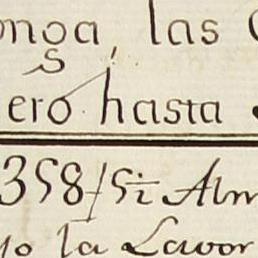 onga, las
ero hasta
358/5½ Alm
yo la Lavor